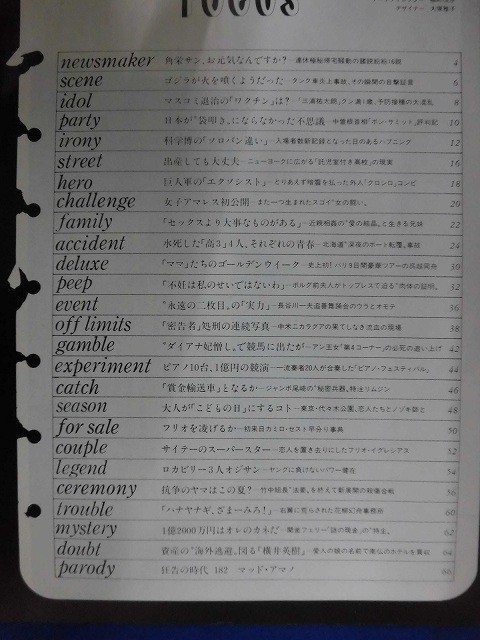 FOCUS
デザイナー
newsmaker 角栄サン、お元気なんですか?
scene ゴジラが火を噴くようだった―タンク車炎上事故、その瞬間の目撃証言 6
idol マスコミ退治の「ワクチン」は? 8
party 日本が“袋叩き”にならなかった不思議―中曽根首相「ボン・サミット」評判記 10
irony 科学博の「ソロバン違い」―入場者数新記録となった日のあるハプニング 12
street 出産しても大丈夫―ニューヨークに広がる「託児室付き高校」の現実 16
hero 巨人軍の「エクソシスト」―とりあえず暗雲を払った外人「クロシロ」コンビ 18
challenge 女子アマレス初公開―また一つ生まれたスゴイ“女の闘い。 20
family 「セックスより大事なものがある」 22
accident 水死した「高3」4人、それぞれの青春―北海道“深夜のボート転覆。事故 24
deluxe 「ママ」たちのゴールデンウイーク―史上初!パリ9日間豪華ツアーの呉越同舟 30
peep 「不妊は私のせいではないわ」―ボルグ前夫人がトップレスで迫る“肉体の証明。 32
event “永遠の二枚目。の「実力」―長谷川一夫追善舞踊会のウラとオモテ 36
off limits 「密告者」処刑の連続写真―中米ニカラグアの果てしなき流血の現場 38
gamble “ダイアナ妃憎し。で競馬に出たが―アン王女“第4コーナー。の必死の追い上げ 42
experiment ピアノ10台、1億円の競演―一流奏者20人が合奏した「ピアノ・フェスティバル」 44
catch 「賞金輸送車」となるか―ジャンボ尾崎の“秘密兵器。特注リムジン 46
season 大人が「こどもの日」にするコト―東京・代々木公園、恋人たちとノゾキ諸士 48
for sale フリオを凌げるか―初来日カミロ・セスト早分り事典 50
couple サイテーのスーパースター―恋人を置き去りにしたフリオ・イグレシアス 52
legend ロカビリー3人オジサン―ヤングに負けないパワー健在 54
ceremony 抗争のヤマはこの夏?―竹中組長“法要。を終えて新展開の殺傷合戦 56
trouble 「ハナヤナギ、ざまーみろ!」―右翼に荒らされた花柳幻舟事務所 60
mystery 1億2000万円はオレのカネだ―関釜フェリー“謎の現金。の“持主。 62
doubt 資産の“海外逃避。図る「横井英樹」―愛人の娘の名前で南仏のホテルを買収 64
parody 狂告の時代 182 マッド・アマノ 66